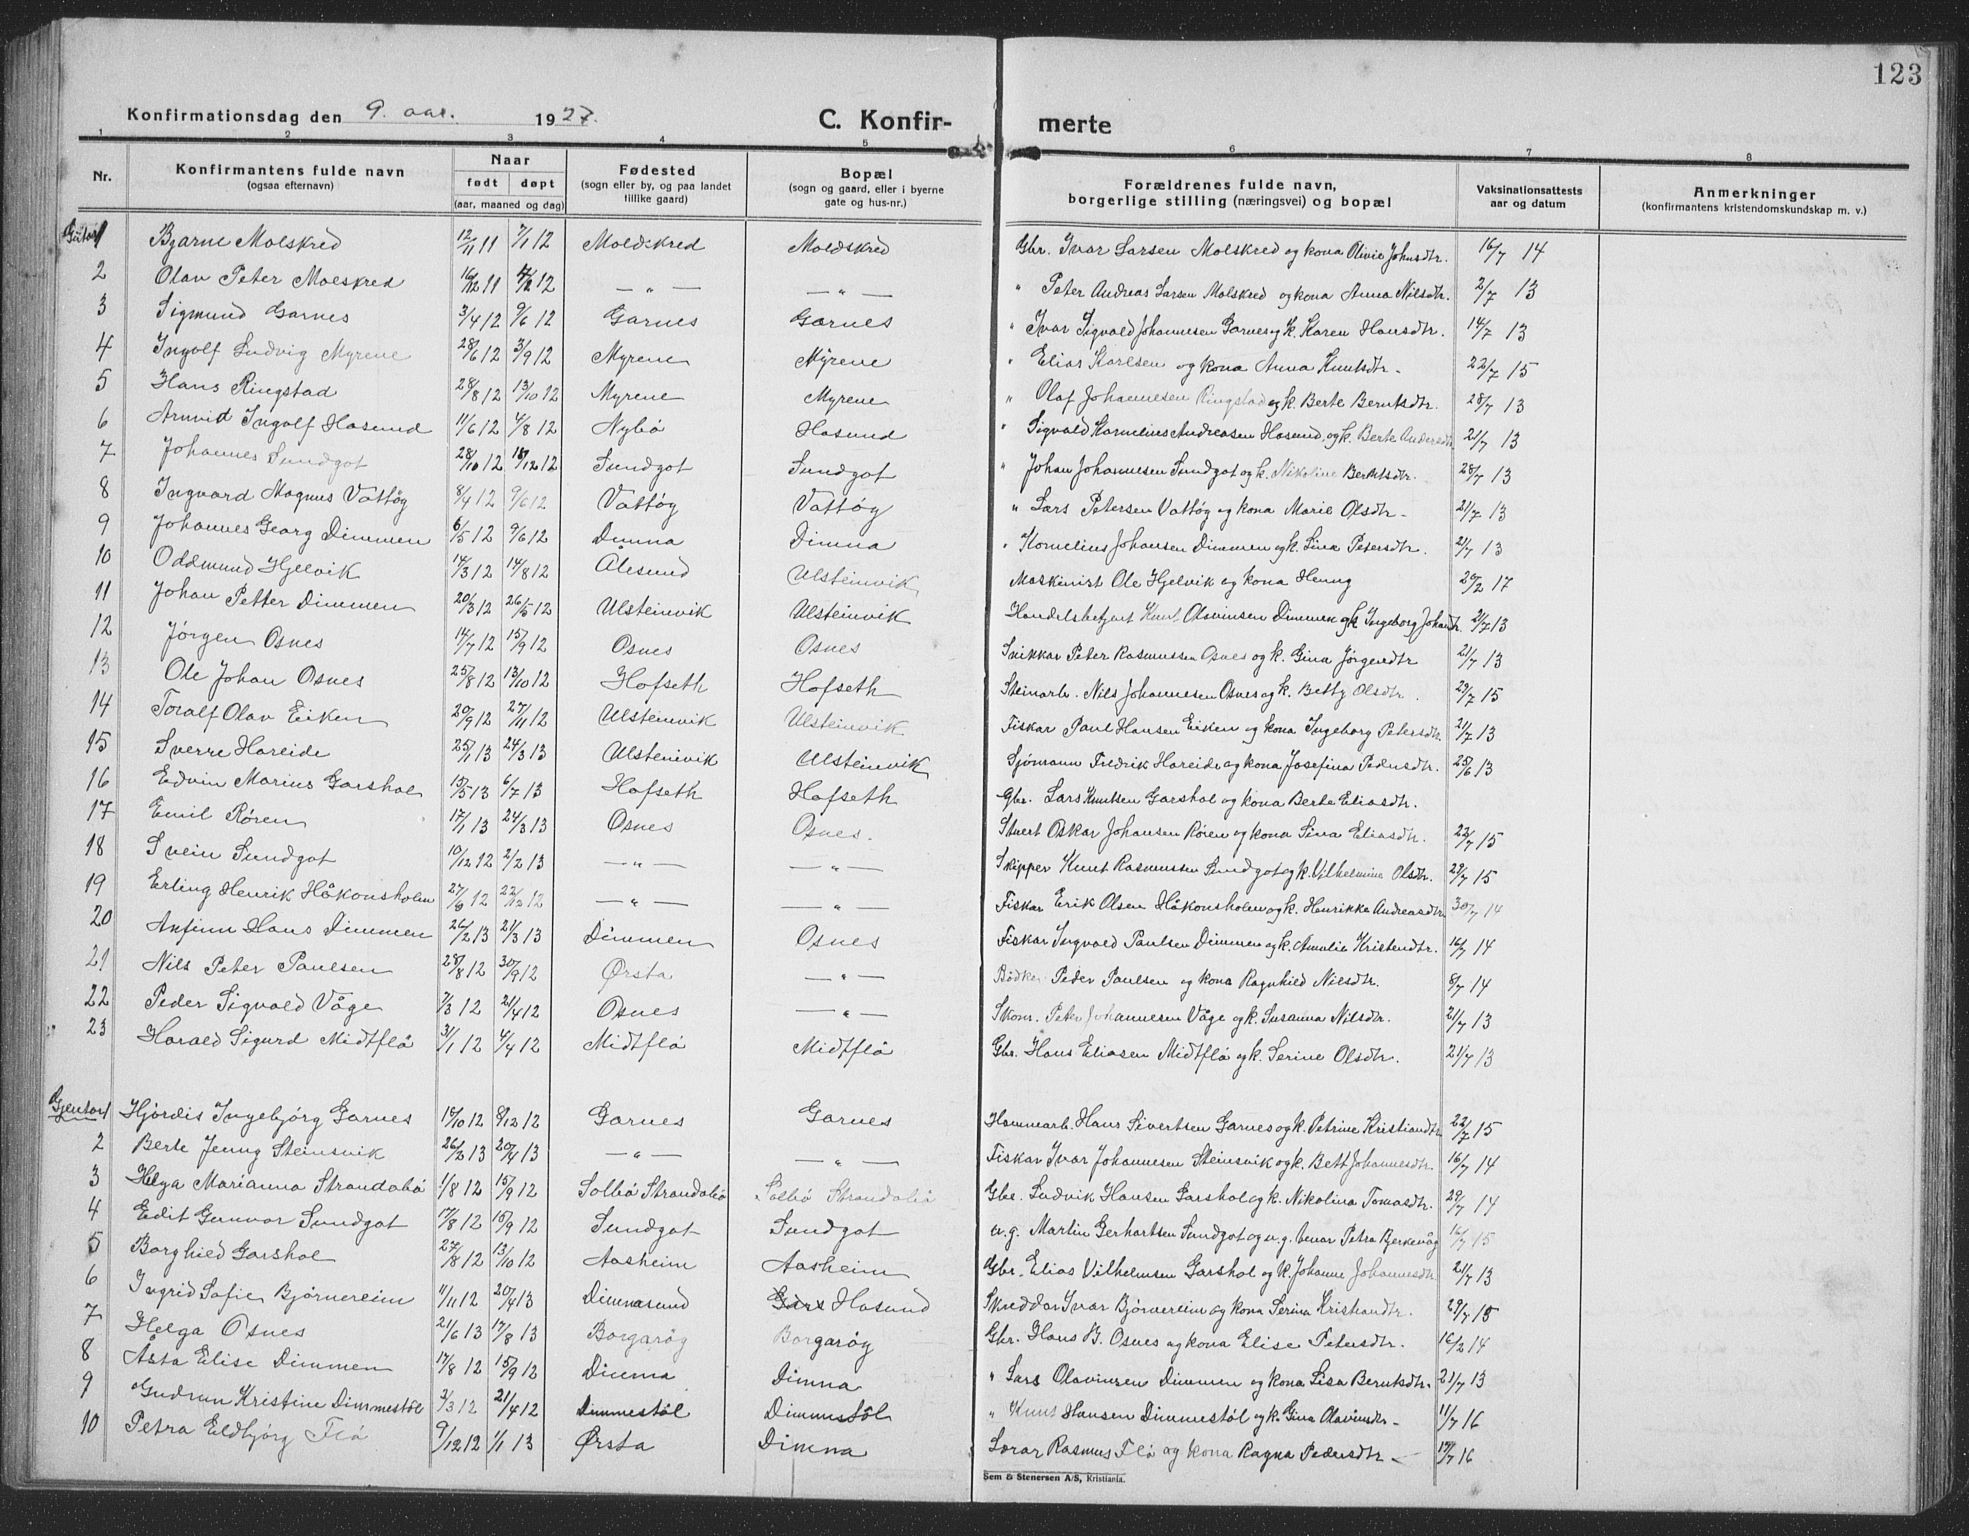 123
Konfirmationsdag den 9. oar. 1927.
C. Konfir- merte
1 2 3 4 5 6 7 8
Nr. Konfirmantens fulde navn (ogsaa efternavn) Naar født døpt (aar, maaned og dag) Fødested (sogn eller by, og paa landet tillike gaard) Bopæl (sogn og gaard, eller i byerne gate og hus-nr.) Forældrenes fulde navn, borgerlige stilling (næringsvei) og bopæl Vaksinationsattests aar og datum Anmerkninger (konfirmantens kristendomskundskap m. v.)
Gutar 1 Bjarne Molskred 12/11 11 7/1 12 Moldskred Moldskred Gbr. Ivar Larsen Molskred og kona Olivie Johnsdtr. 16/7 14
2 Olav Peter Molskred 16/12 11 4/2 12 — " — — " — " Peter Andreas Larsen Molskred og kona Anna Nilsdtr. 2/7 13
3 Sigmund Garnes 3/4 12 9/6 12 Garnes Garnes " Ivar Sigvald Johannesen Garnes og k. Karen Hansdtr. 14/7 13
4 Ingolf Ludvig Myrene 28/6 12 3/9 12 Myrene Myrene " Elias Karlsen og kona Anna Knutsdtr - 22/7 15
5 Hans Ringstad 28/8 12 13/10 12 Myrene Myrene " Olaf Johannesen Ringstad og k. Berte Berntsdtr. 28/7 13
6 Arnvid Ingolf Hasund 11/6 12 4/8 12 Nybø Hasund " Sigvald Kornelius Andreasen Hasund og k. Berte Andersdtr 21/7 13
7 Johannes Sundgot 28/10 12 18/12 12 Sundgot Sundgot " Johan Johannesen Sundgot og k. Nikoline Berntsdtr. 28/7 13
8 Ingvard Magnus Vattøy 8/4 12 9/6 12 Vattøy Vattøy " Lars Petersen Vattøy og kona Marie Olsdtr - 21/7 13
9 Johannes Georg Dimmen 6/5 12 9/6 12 Dimna Dimna " Kornelius Johansen Dimmen og k. Lina Petersdtr. 21/7 13
10 Oddmund Hjelvik 14/3 12 14/8 12 Ålesund Ulsteinvik Maskinist Ole Hjelvik og kona Henny 20/2 17
11 Johan Petter Dimmen 20/3 12 26/5 12 Ulsteinvik Ulsteinvik Handelsbetjent Knut Olavinsen Dimmen og k. Ingeborg Johansdtr. 21/7 13
12 Jørgen Osnes 14/7 12 15/9 12 Osnes Osnes Snikkar Peter Rasmussen Osnes og k. Gina Jørgensdtr 21/7 13
13 Ole Johan Osnes 25/8 12 13/10 12 Hofseth Hofseth Steinarb. Nils Johannesen Osnes og k. Betty Olsdtr. 29/7 15
14 Toralf Olav Eiken 20/9 12 27/11 12 Ulsteinvik Ulsteinvik Fiskar Paul Hansen Eiken og kona Ingeborg Petersdtr. 21/7 13
15 Sverre Hareide 25/1 13 24/3 13 Ulsteinvik Ulsteinvik Sjømann Fredrik Hareide og kona Josefina Pedersdtr. 25/6 13
16 Edvin Marius Garshol 15/5 13 6/7 13 Hofseth Hofseth Gbr. Lars Knutsen Garshol og kona Berte Eliasdtr.
17 Emil Røren 17/1 13 24/3 13 Osnes Osnes. Stuert Oskar Johansen Røren og kona Lina Eliasdtr. 22/7 15
18 Svein Sundgot 10/12 12 2/2 13 — " — — " — Skipper Knut Rasmussen Sundgot og k. Vilhelmina Olsdtr. 29/7 15
19 Erling Henrik Håkonsholm 27/9 12 22/12 12 — " — — " — Fiskar Erik Olsen Håkonsholm og k. Henrikke Andreasdtr. 30/7 14
20 Anfinn Hans Dimmen 26/2 13 21/3 13 Dimmen Osnes Fiskar Ingvald Paulsen Dimmen og k. Amalie Kristendtr. 16/7 14
21 Nils Peter Paulsen 28/8 12 30/9 12 Ørsta — " — Bødker Peder Paulsen og kona Ragnhild Nilsdtr. 8/7 14
22 Peder Sigvald Våge 7/3 12 21/4 12 Osnes — " — Skom. Peter Johannesen Våge og k. Susanna Nilsdtr. 21/7 13
23 Harald Sigurd Midtflø 31/1 12 4/4 12 Midtflø Midtflø Gbr. Hans Eliasen Midtflø og k. Serine Olsdtr. 21/7 13
Gjentor 1 Hjørdis Ingebjørg Garnes 15/10 12 8/12 12 Garnes Garnes Hammarb. Hans Sivertsen Garnes og k. Petrine Kristiandtr. 22/7 15
2 Berte Jenny Steinsvik 26/2 13 20/4 13 — " — — " — Fiskar Ivar Johannesen Steinsvik og k. Bett Johannesdtr. 16/7 14
3 Helga Marianna Strandabø 1/8 12 15/9 12 Solbø Strandabø Solbø Strandabø Gbr. Ludvik Hansen Garshol og k. Nikolina Tomasdtr. 29/7 14
4 Edit Gunvor Sundgot 17/8 12 15/9 12 Sundgot Sundgot u.g. Martin Gerhartsen Sundgot og u.g. Anna Petra Bjerkevåg 16/7 15
5 Borghild Garshol 27/8 12 13/10 12 Aasheim Aasheim Gbr. Elias Vilhelmsen Garshol og k. Johanne Johannesdtr. 21/7 13
6 Ingrid Sofie Bjørnereim 11/11 12 20/4 13 Dimnasund Hasund Skreddar Ivar Bjørnereim og kona Serina Kristiandtr. 29/7 15
7 Helga Osnes 21/6 13 17/8 13 Borgarøy Borgarøy Gbr. Hans B. Osnes og kona Elise Petersdtr. 16/2 14
8 Asta Elise Dimmen 17/8 12 15/9 12 Dimna Dimna " Lars Olavinsen Dimmen og kona Lisa Berntsdtr. 21/7 13
9 Gudrun Kristine Dimmestøl 3/3 12 21/4 12 Dimmestøl Dimmestøl " Knut Hansen Dimmestøl og k. Gina Olavinsdtr - 11/7 16
10 Petra Eldbjørg Flø 9/12 12 1/1 13 Ørsta Dimna Lærar Rasmus Flø og kona Ragna Pedersdtr - 17/7 16
Sem & Stenersen A/S, Kristiania.